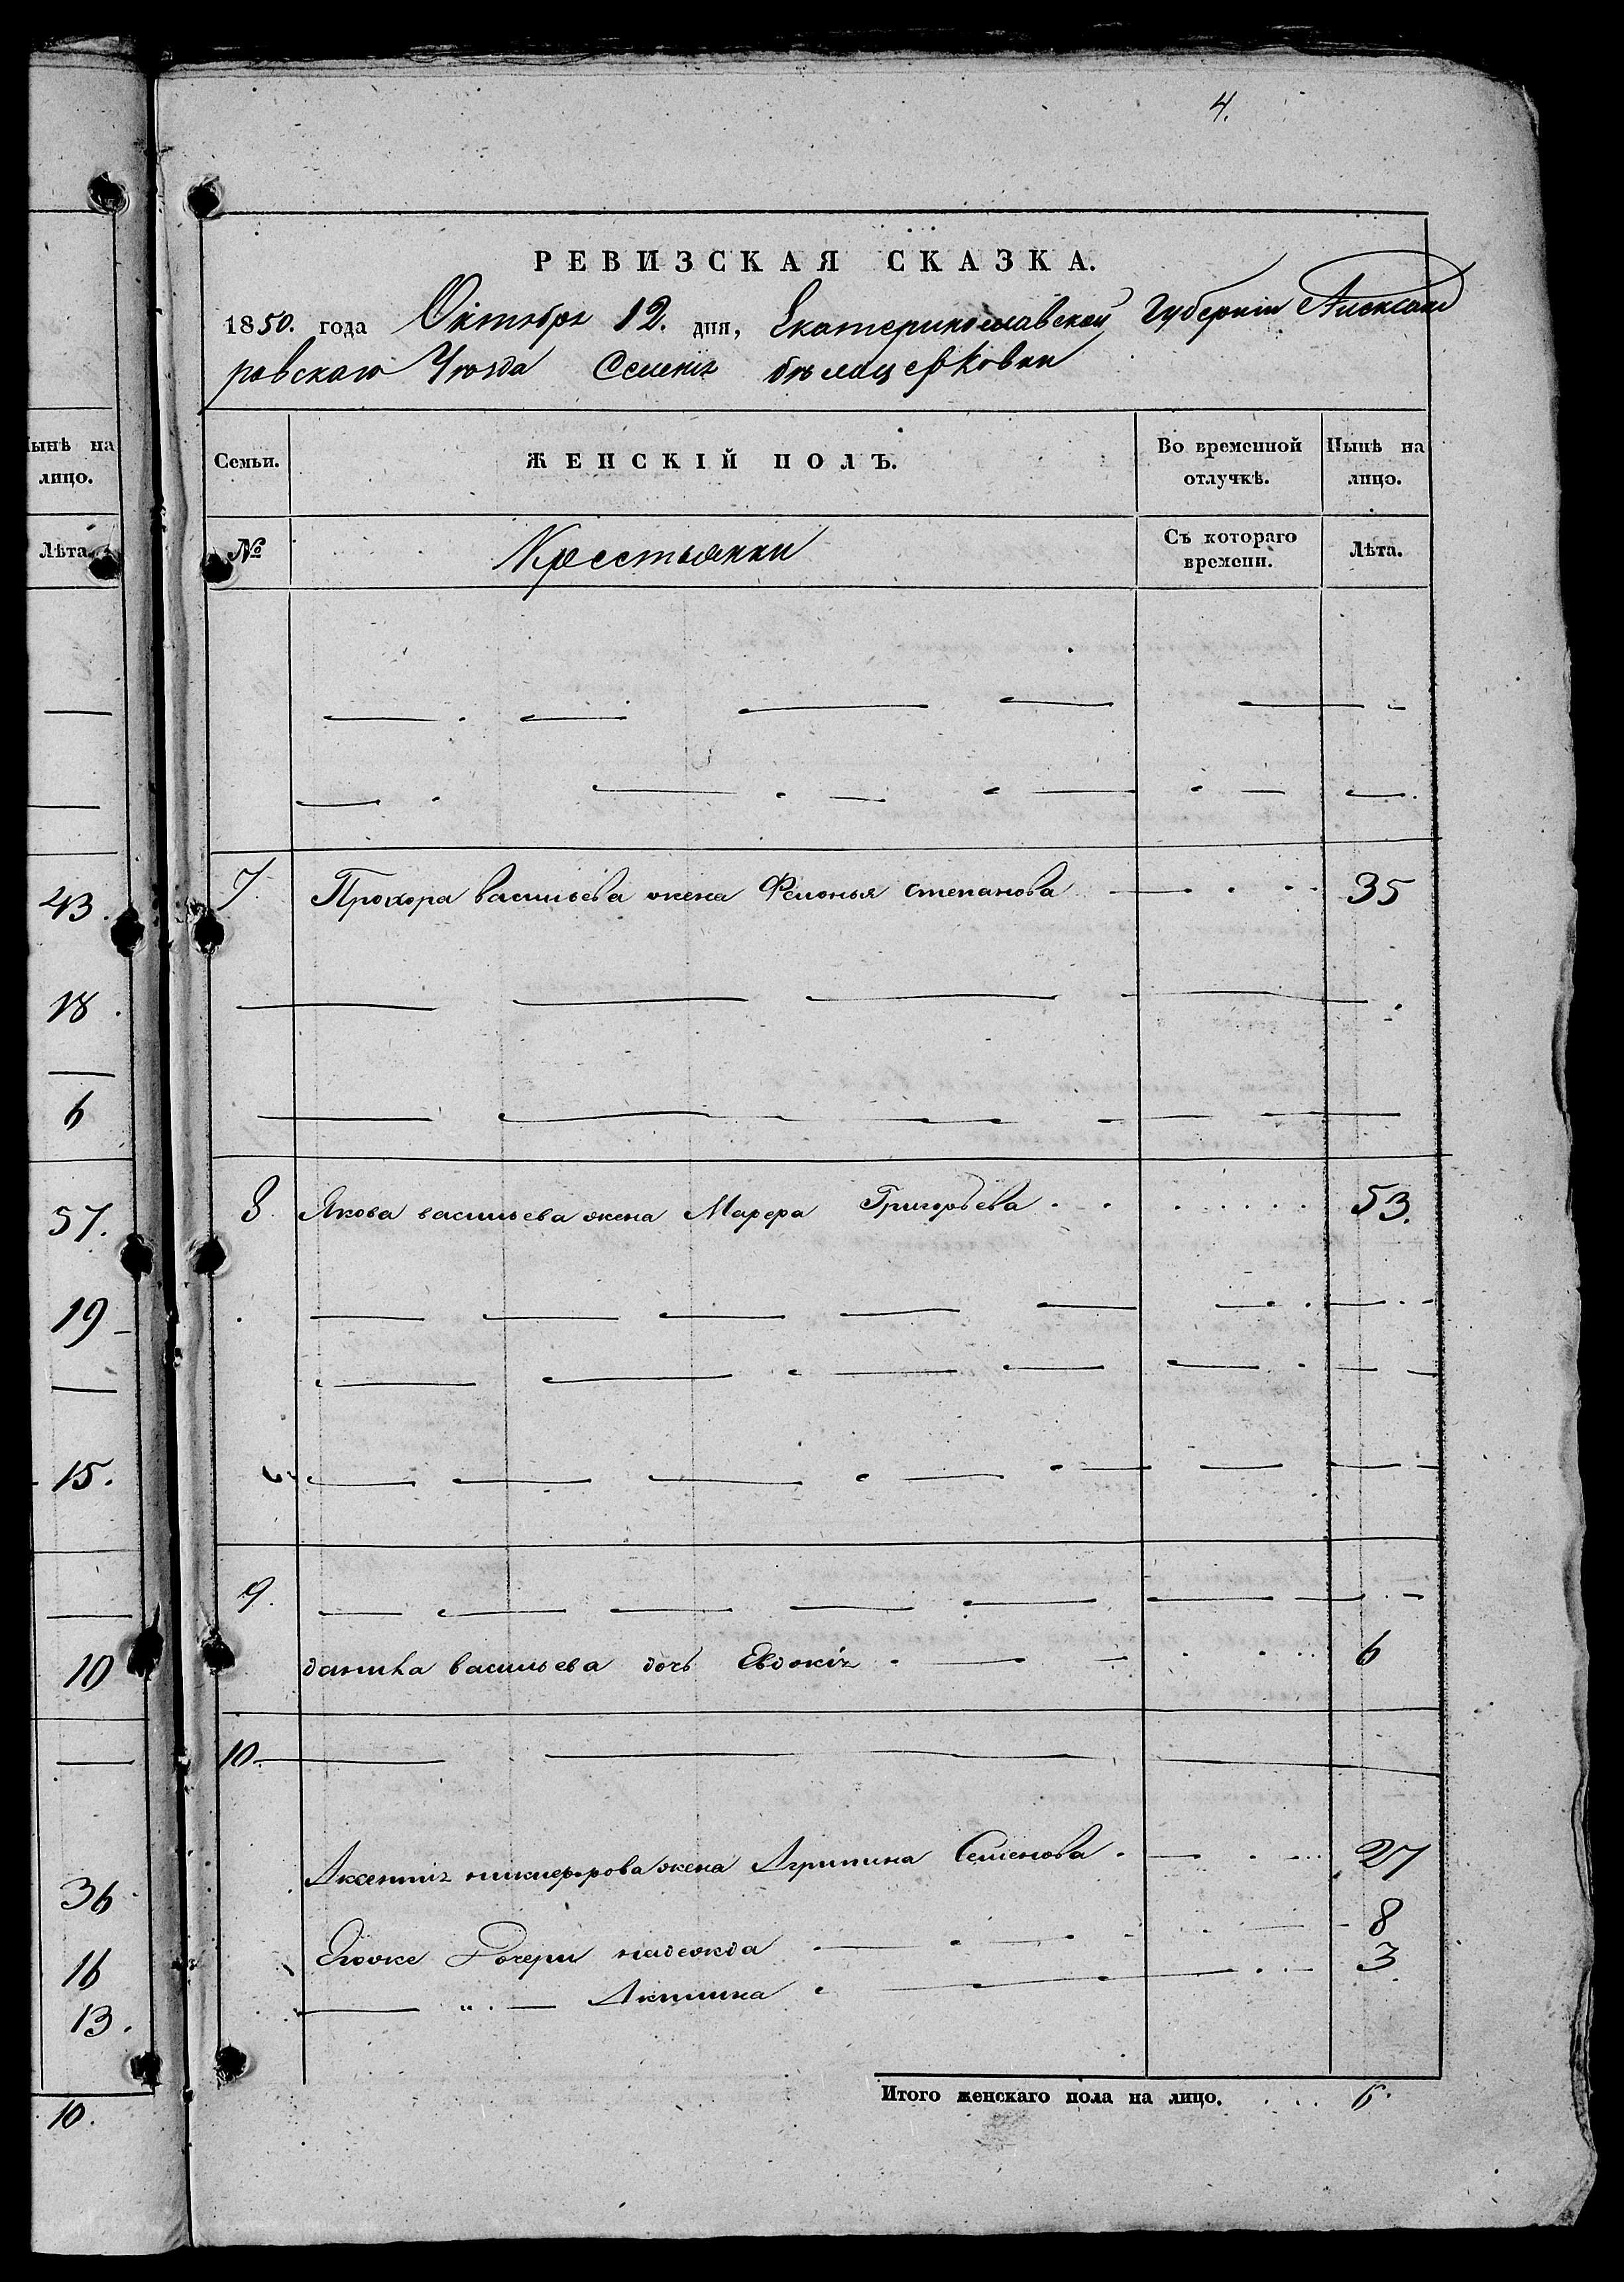 4.
РЕВИЗСКАЯ СКАЗКА.
1850. года Октября 12. дня, Екатеринославской Губерніи Александ
ровскаго Уѣзда Селенія бѣлацерковки
Нынѣ на лицо.
Лѣта.
43.
18.
6
57.
19
15.
10
36
16
13.
10.
Семьи. ЖЕНСКІЙ ПОЛЪ. Во временной отлучкѣ. Нынѣ на лицо.
№ Крестьянки Съ котораго времени. Лѣта.
7. Прохора васильева жена Фелонья степанова 35
8. Якова васильева жена Марфа Григорьева 53.
9.
данила васильева дочь Евдокія 6
10.
Аксентія никифорова жена Агрипина Семенова 27
Егоже Дочери надежда 8
" Акилина 3
Итого женскаго пола на лицо. 6.